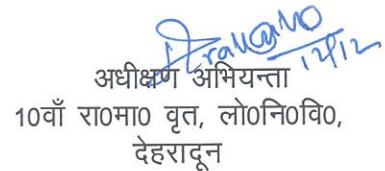 12/12
अधीक्षण अभियन्ता
10वाँ रा0मा0 वृत, लो0नि0वि0,
देहरादून